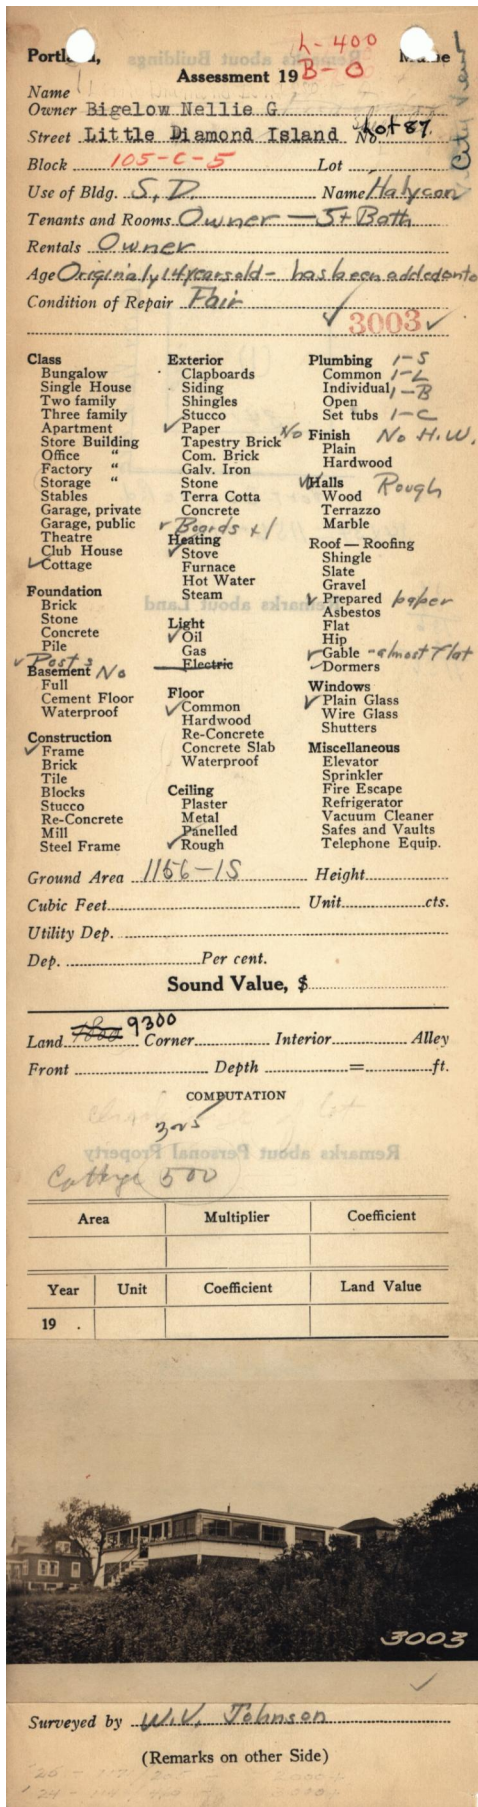 L-400
Portland, Maine
Assessment 19 B-0
Name
Owner Bigelow Nellie G
Street Little Diamond Island No. Lot 87
City View
Block 105-C-5 Lot
Use of Bldg. S. D. Name Halycon
Tenants and Rooms Owner — 5+ Bath
Rentals Owner
Age Originaly 14 years old - has been added onto
Condition of Repair Fair
3003
Class
Bungalow
Single House
Two family
Three family
Apartment
Store Building
Office "
Factory "
Storage "
Stables
Garage, private
Garage, public
Theatre
Club House
Cottage
Foundation
Brick
Stone
Concrete
Pile
Posts
Basement No
Full
Cement Floor
Waterproof
Construction
Frame
Brick
Tile
Blocks
Stucco
Re-Concrete
Mill
Steel Frame
Exterior
Clapboards
Siding
Shingles
Stucco
Paper
Tapestry Brick
Com. Brick
Galv. Iron
Stone
Terra Cotta
Concrete
Boards +1
Heating
Stove
Furnace
Hot Water
Steam
Light
Oil
Gas
Electric
Floor
Common
Hardwood
Re-Concrete
Concrete Slab
Waterproof
Ceiling
Plaster
Metal
Panelled
Rough
Plumbing 1-S
Common 1-L
Individual 1-B
Open
Set tubs 1-C
No Finish No H.W.
Plain
Hardwood
Halls Rough
Wood
Terrazzo
Marble
Roof — Roofing
Shingle
Slate
Gravel
Prepared paper
Asbestos
Flat
Hip
Gable - almost Flat
Dormers
Windows
Plain Glass
Wire Glass
Shutters
Miscellaneous
Elevator
Sprinkler
Fire Escape
Refrigerator
Vacuum Cleaner
Safes and Vaults
Telephone Equip.
Ground Area 1156-1S Height
Cubic Feet Unit cts.
Utility Dep.
Dep. Per cent.
Sound Value, $
Land 9300 Corner Interior Alley
Front Depth = ft.
COMPUTATION
Cottage 500
Area Multiplier Coefficient
Year Unit Coefficient Land Value
19 .
3003
Surveyed by W.V. Johnson
(Remarks on other Side)